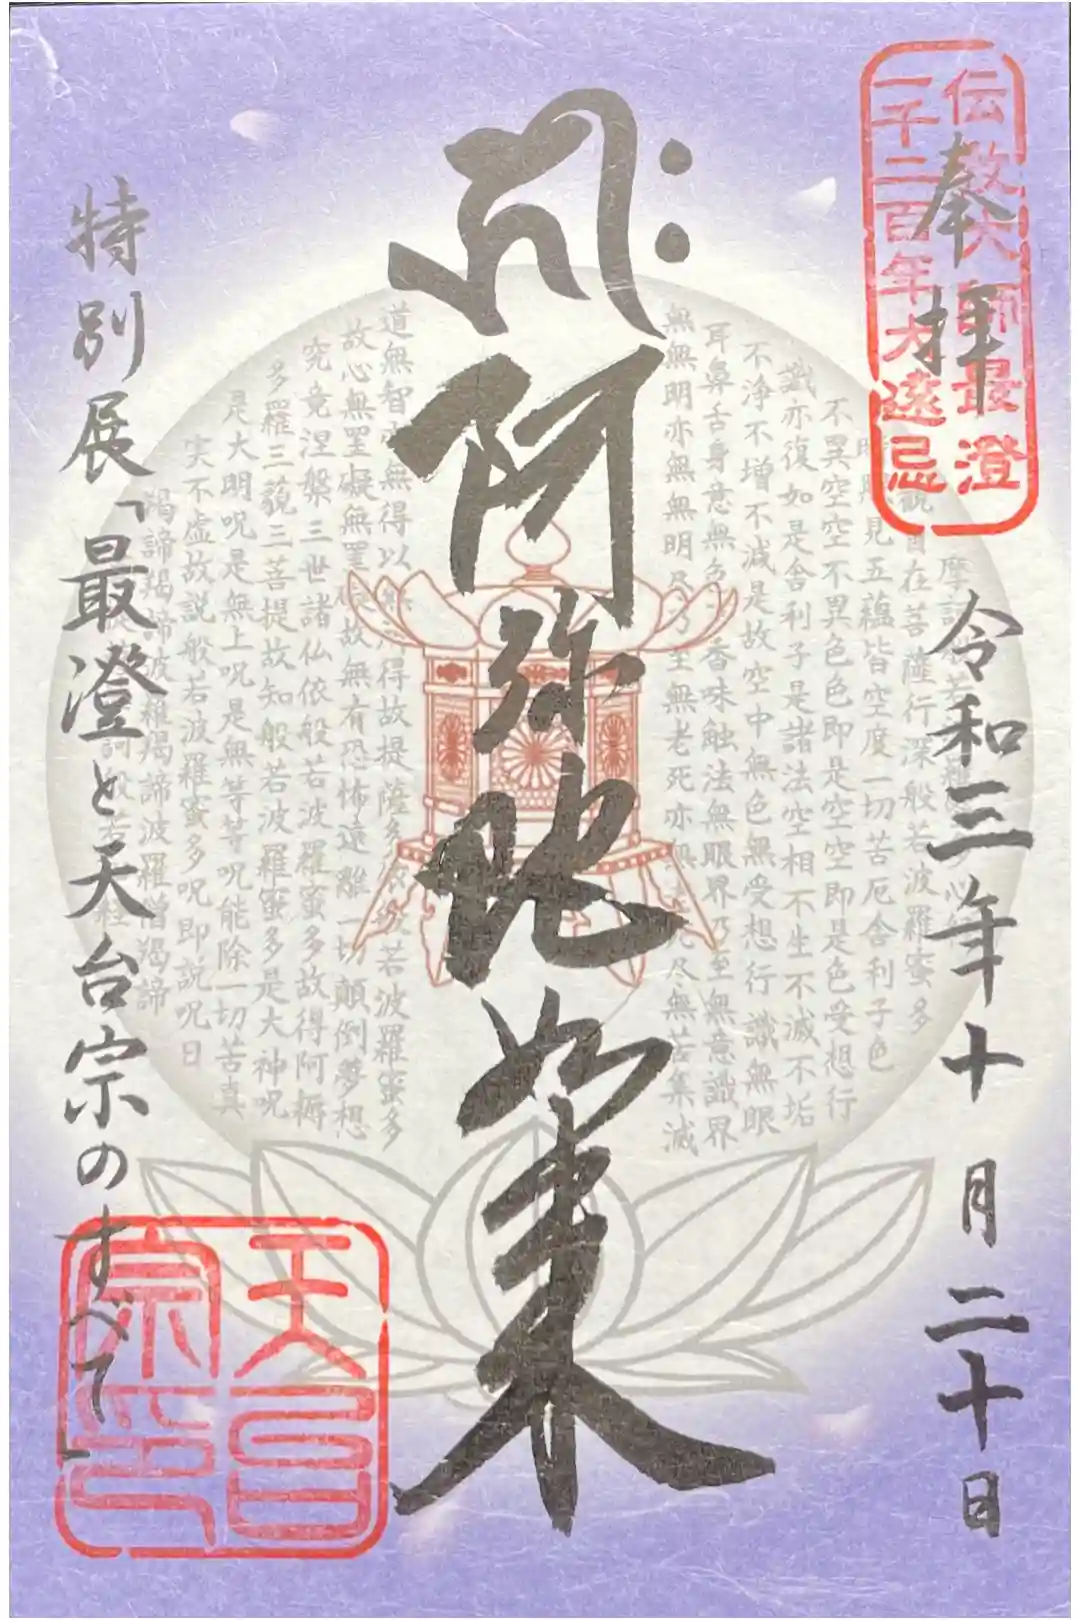 伝教大師最澄
一千二百年大遠忌
奉拝
令和三年十月二十日
観自在菩薩行深般若波羅蜜多
見五蘊皆空度一切苦厄舎利子色
不異空空不異色色即是空空即是色受想行
識亦復如是舎利子是諸法空相不生不滅不垢
不浄不増不減是故空中無色無受想行識無眼
耳鼻舌身意無色香味触法無眼界乃至無意識界
無無明亦無無明尽乃至無老死亦無老死尽無苦集滅
𑖮𑖿𑖨𑖱𑖾
阿弥陀如来
道無智亦無得以無所得故提薩多依般若波羅蜜多
故心無罣礙無罣礙故無有恐怖遠離一切顛倒夢想
究竟涅槃三世諸仏依般若波羅蜜多故得阿耨
多羅三藐三菩提故知般若波羅蜜多是大神呪
是大明呪是無上呪是無等等呪能除一切苦真
実不虚故説般若波羅蜜多呪即説呪曰
羯諦羯諦波羅羯諦波羅僧羯諦
特別展「最澄と天台宗のすべて」
天台
宗印